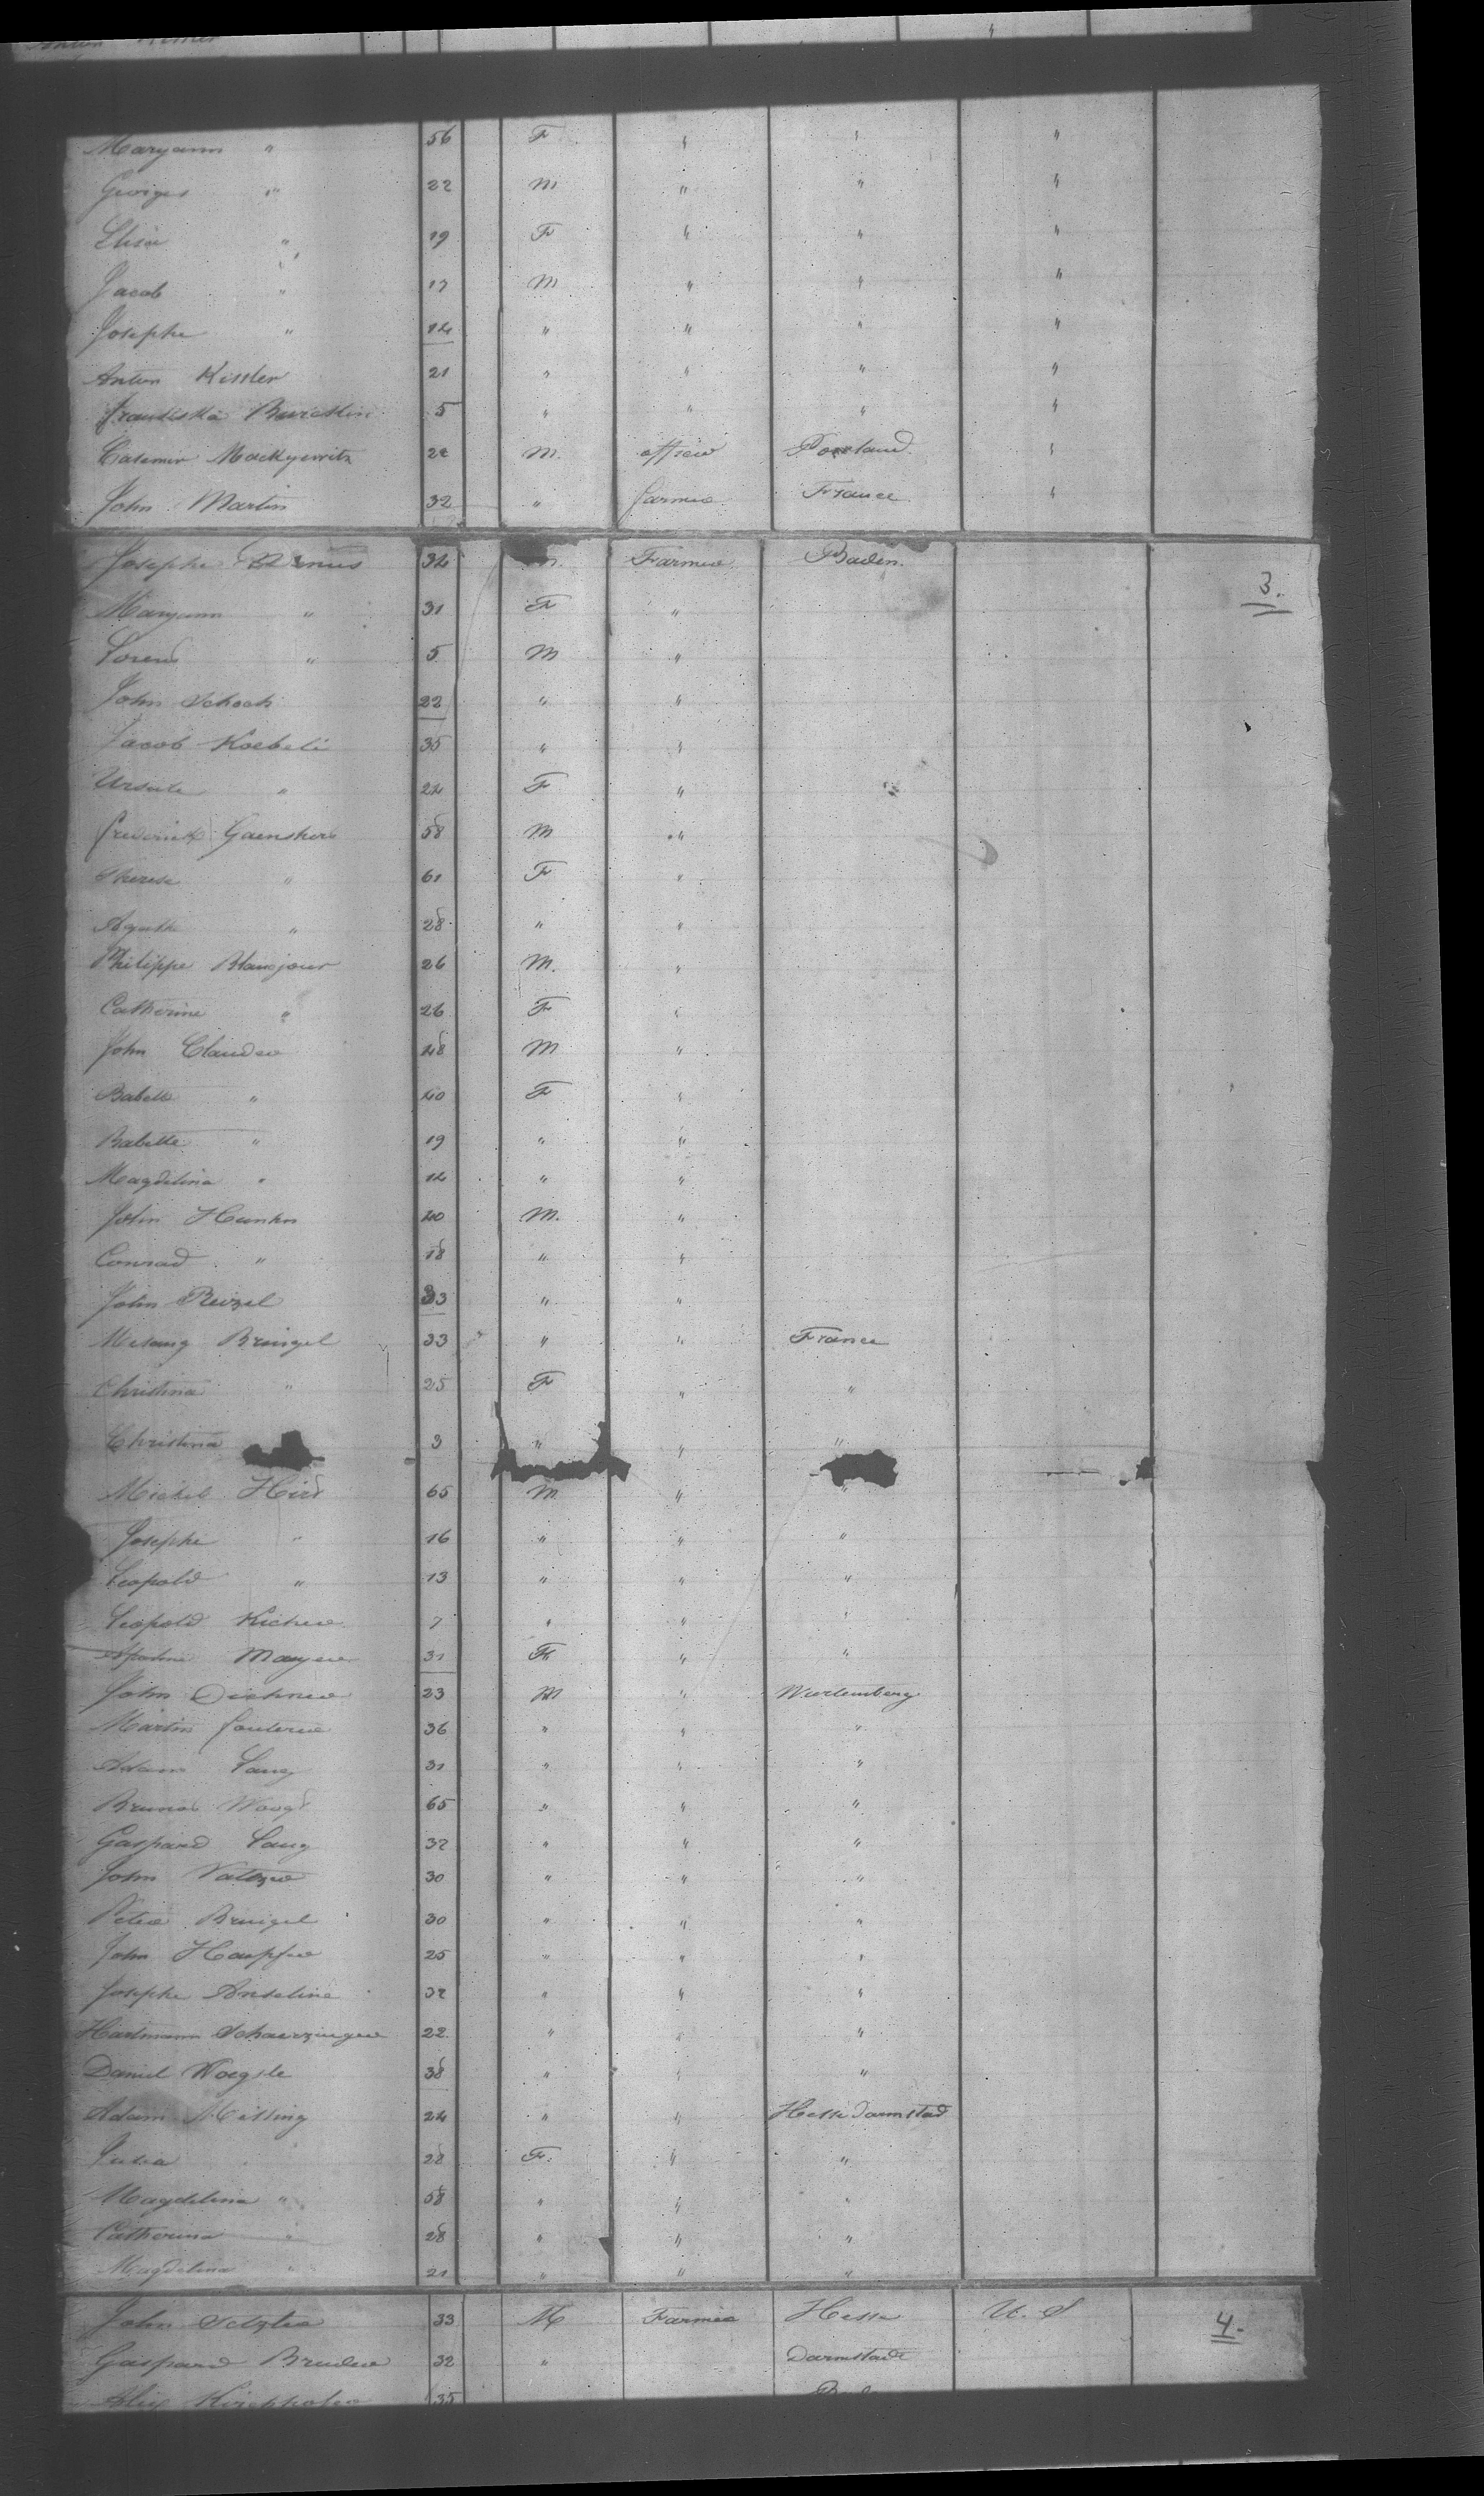 Maryann " 56 F " " "
Georges " 22 M " " "
Elisa " 19 F " " "
Jacob " 17 M " " "
Josephe " 14 " " " "
Anton Kissler 21 " " " "
Franziska 5 " " " "
Casemir Mackyewitz 22 M. officer Poorland "
John Martin 32 " farmer France "
Josephe 34 m. Farmer Baden.
3.
Maryann " 31 F "
Lorens " 5 M "
John Schoch 22 " "
Jacob Koebeli 35 " "
Ursule " 24 F "
Frederick Gaensher 58 M "
Therese " 61 F "
Agathe " 28 " "
Philippe Blanjour 26 M. "
Catherine " 26 F "
John Clauder 48 M "
Babette " 40 F "
Babette " 19 " "
Magdelina " 14 " "
John Hunken 40 M. "
Conrad " 18 " "
John Reizel 33 " "
Bruigel 33 " " France
Christina " 25 F " "
Christina 3 " " "
Michel Hird 65 M " "
Josephe " 16 " " "
Leopold " 13 " " "
Leopold Kicher 7 " " "
Mayer 31 F " "
John Dichner 23 M " Wurtemberg
Martin 36 " " "
Adam Lang 31 " " "
65 " " "
Gaspard Lang 32 " " "
John 30 " " "
Peter Bruigel 30 " " "
John Haupfer 25 " " "
Josephe Anseline 32 " " "
Hartmann Schaerzinger 22 " " "
Daniel Woegsle 38 " " "
Adam Missing 24 " " Hesse Darmstad
28 F. " "
Magdelina " 58 " " "
Catherina " 28 " " "
Magdelina " 21 " " "
John 33 M Farmer Hesse U. S
4.
Gaspard Bruder 32 " Darmstadt
35